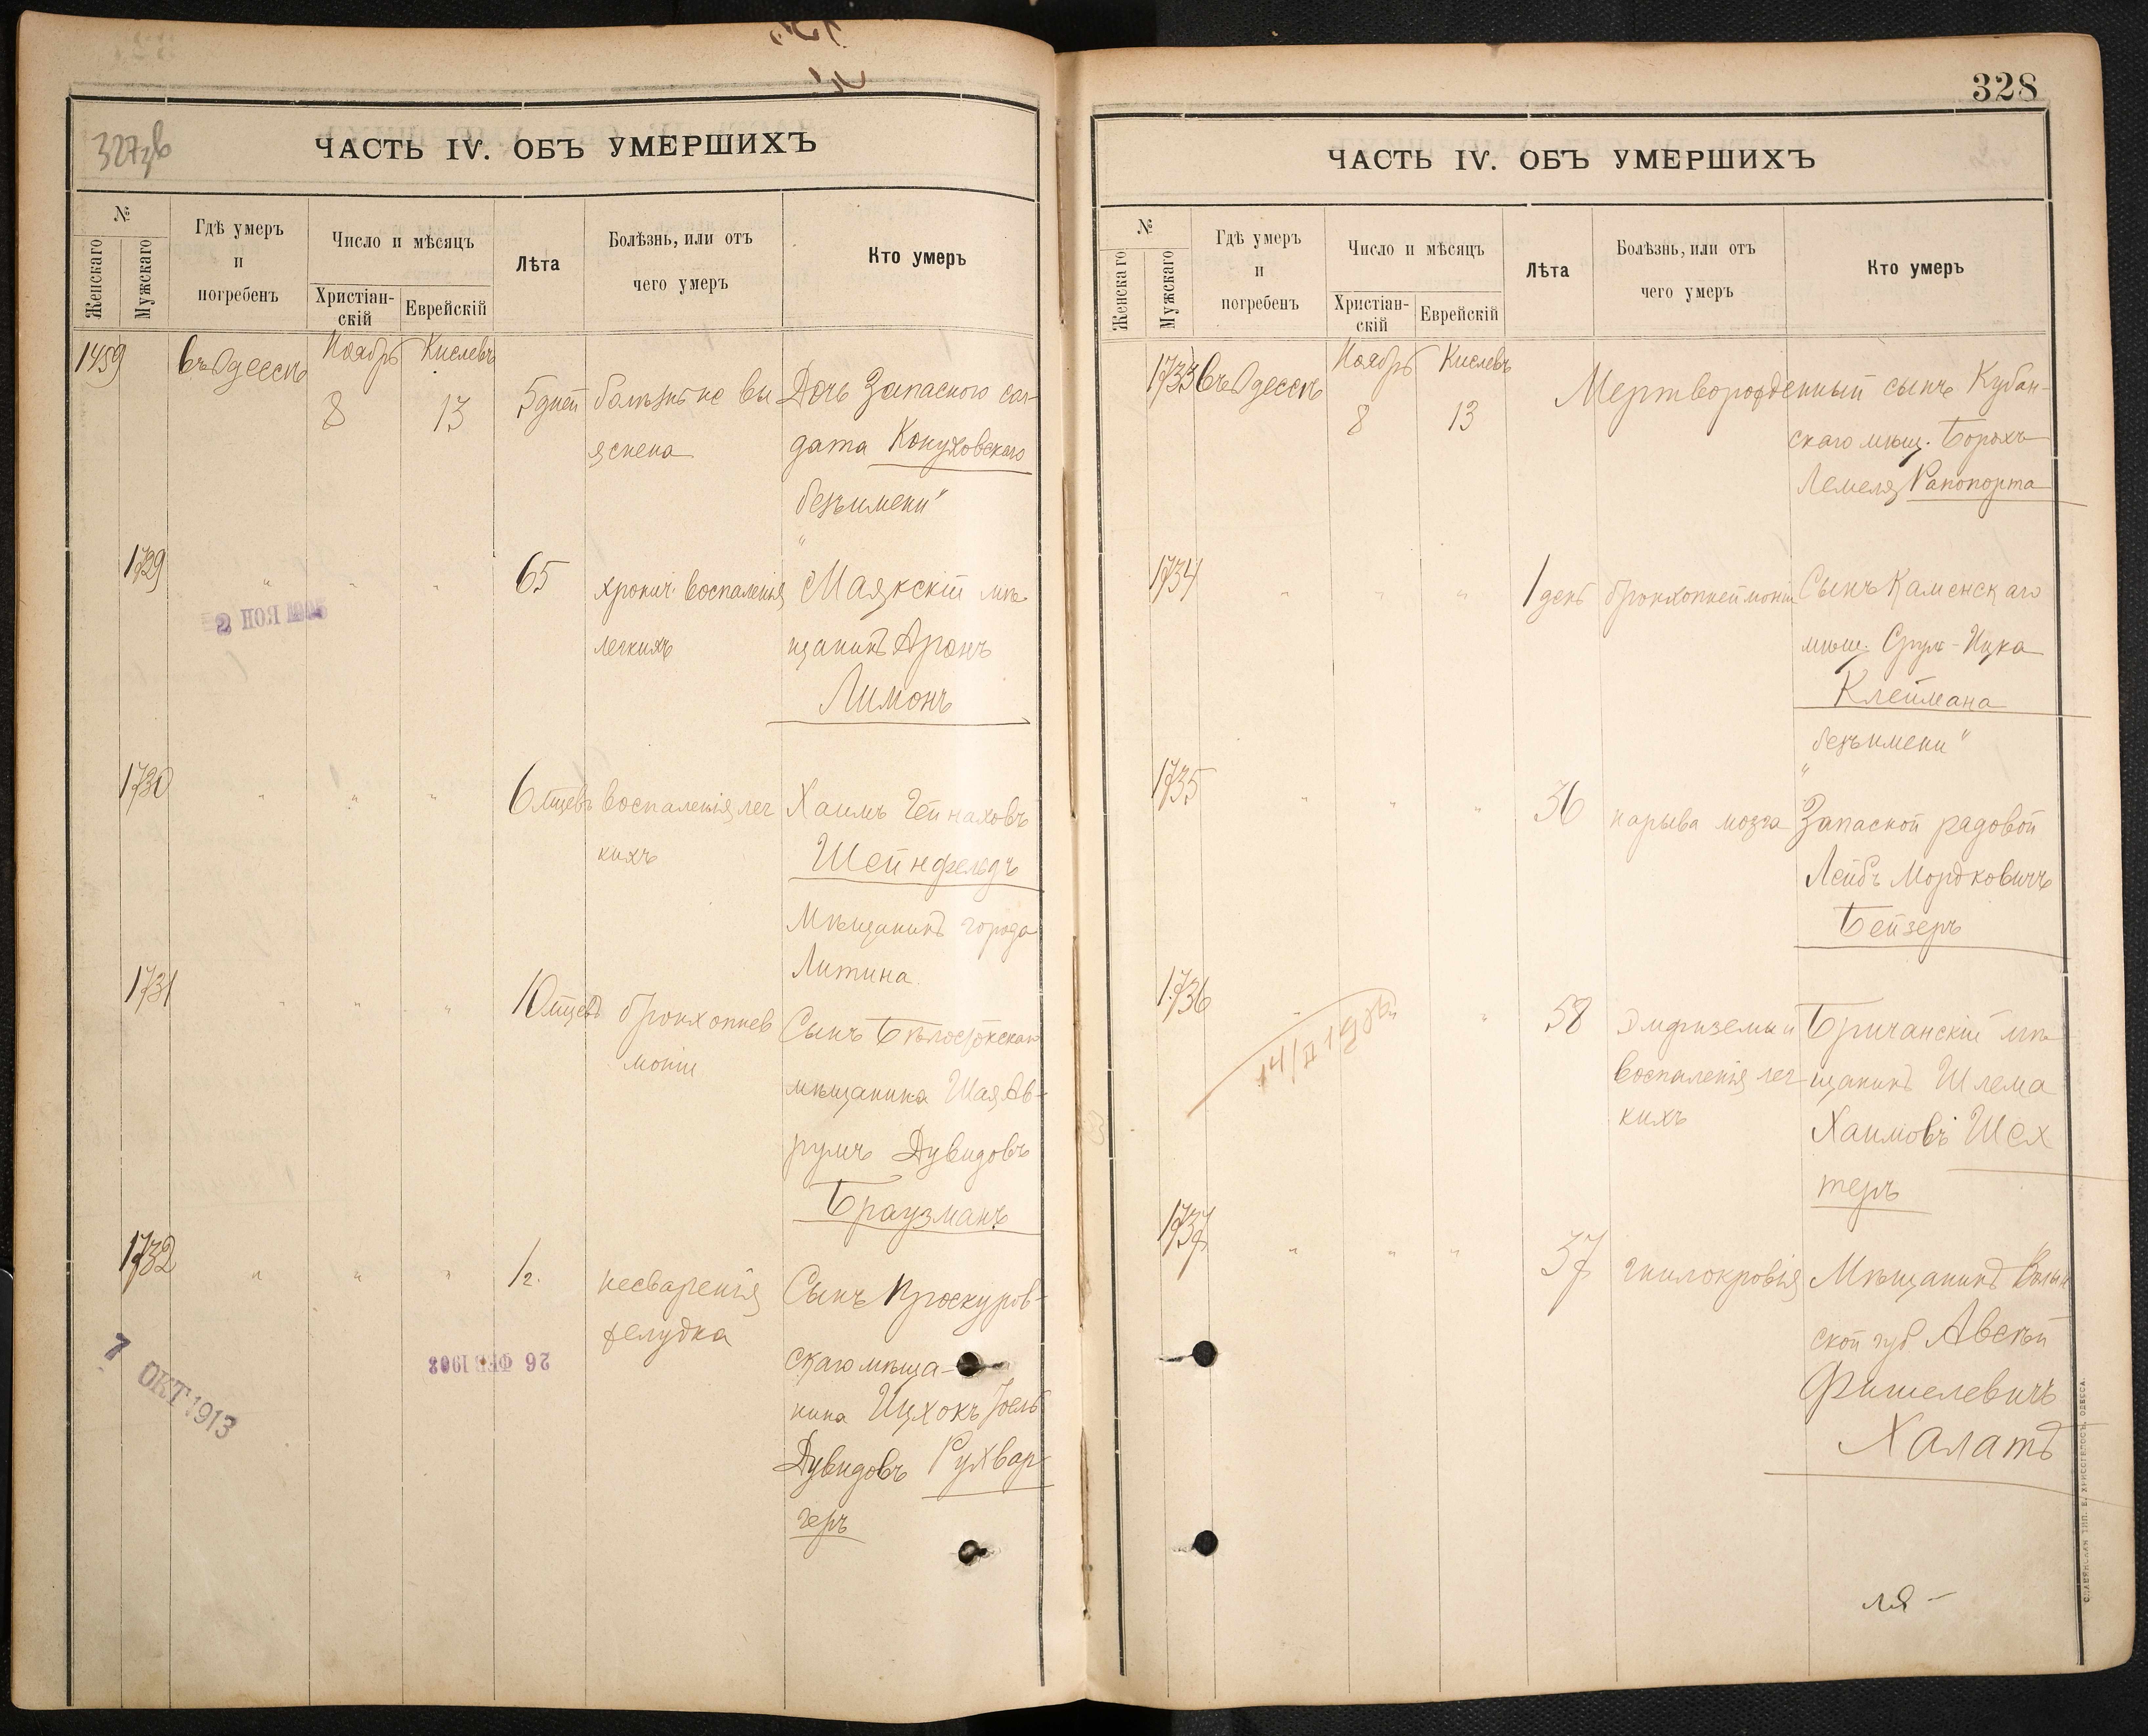 327зв
ЧАСТЬ IV. ОБЪ УМЕРШИХЪ
№
Женскаго
Мужскаго
Гдѣ умеръ
и
погребенъ
Число и мѣсяцъ
Христіан-
скій
Еврейскій
Лѣта
Болѣзнь, или отъ
чего умеръ
Кто умеръ
1459 въ Одессѣ Ноябрь Кислевъ
8 13 5 дней болѣзнь не вы Дочь Запаснаго сол-
яснена дата Конуховскаго
"безъимени"
1729 " " " 65 хронич. воспаленія Маякскій мѣ-
легкихъ щанинъ Аронъ
Лимонъ
2 НОЯ
1730 " " " 6 мцевъ воспаленія лег Хаимъ Гейнаховъ
кихъ Шейнфельдъ
Мѣщанинъ города
Литина.
1731 " " " 10 мцевъ бронхопнев Сынъ Бѣлостокскаго
моніи мѣщанина Шая Ав-
румъ Дувидовъ
Браузманъ
1732 " " " 1/2. несваренія Сынъ Проскуров-
желудка скаго мѣща-
нина Ицхокъ Іоель
Дувидовъ Рухвар-
геръ
26 ФЕВ 1908
7 ОКТ 1913
328
ЧАСТЬ IV. ОБЪ УМЕРШИХЪ
№
Женскаго
Мужскаго
Гдѣ умеръ
и
погребенъ
Число и мѣсяцъ
Христіан-
скій
Еврейскій
Лѣта
Болѣзнь, или отъ
чего умеръ
Кто умеръ
1733 въ Одессѣ Ноябрь Кислевъ
8 13 Мертворожденный сынъ Кубан-
скаго мѣщ. Борохъ
Лемеля Рапопорта
1734 " " " 1 день бронхопнеймоніи Сынъ Каменскаго
мѣщ. Срул-Ицка
Клеймана
"безъимени"
1735 " " " 36 нарыва мозга Запасной рядовой
Лейбъ Мордковичъ
Бейзеръ
1736 " " " 58 Эмфиземы и Бричанскій мѣ
воспаленія лег- щанинъ Шлема
кихъ Хаимовъ Шех
теръ
14/II
1737 " " " 37 гнилокровія Мѣщанинъ Волын
ской губ Авсѣй
Фишелевичъ
Халатъ
ля -
СЛАВЯНСКАЯ ТИП. Е. ХРИСОГЕЛОСЪ, ОДЕССА.